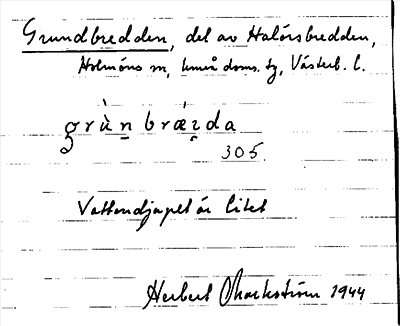 Grundbredden, del av Halörsbredden,
Holmöns sn, Umeå doms. tg, Västerb. l.
grùn̥ brǽɪ̥da
305
Vattendjupet är litet
Herbert Markström 1944